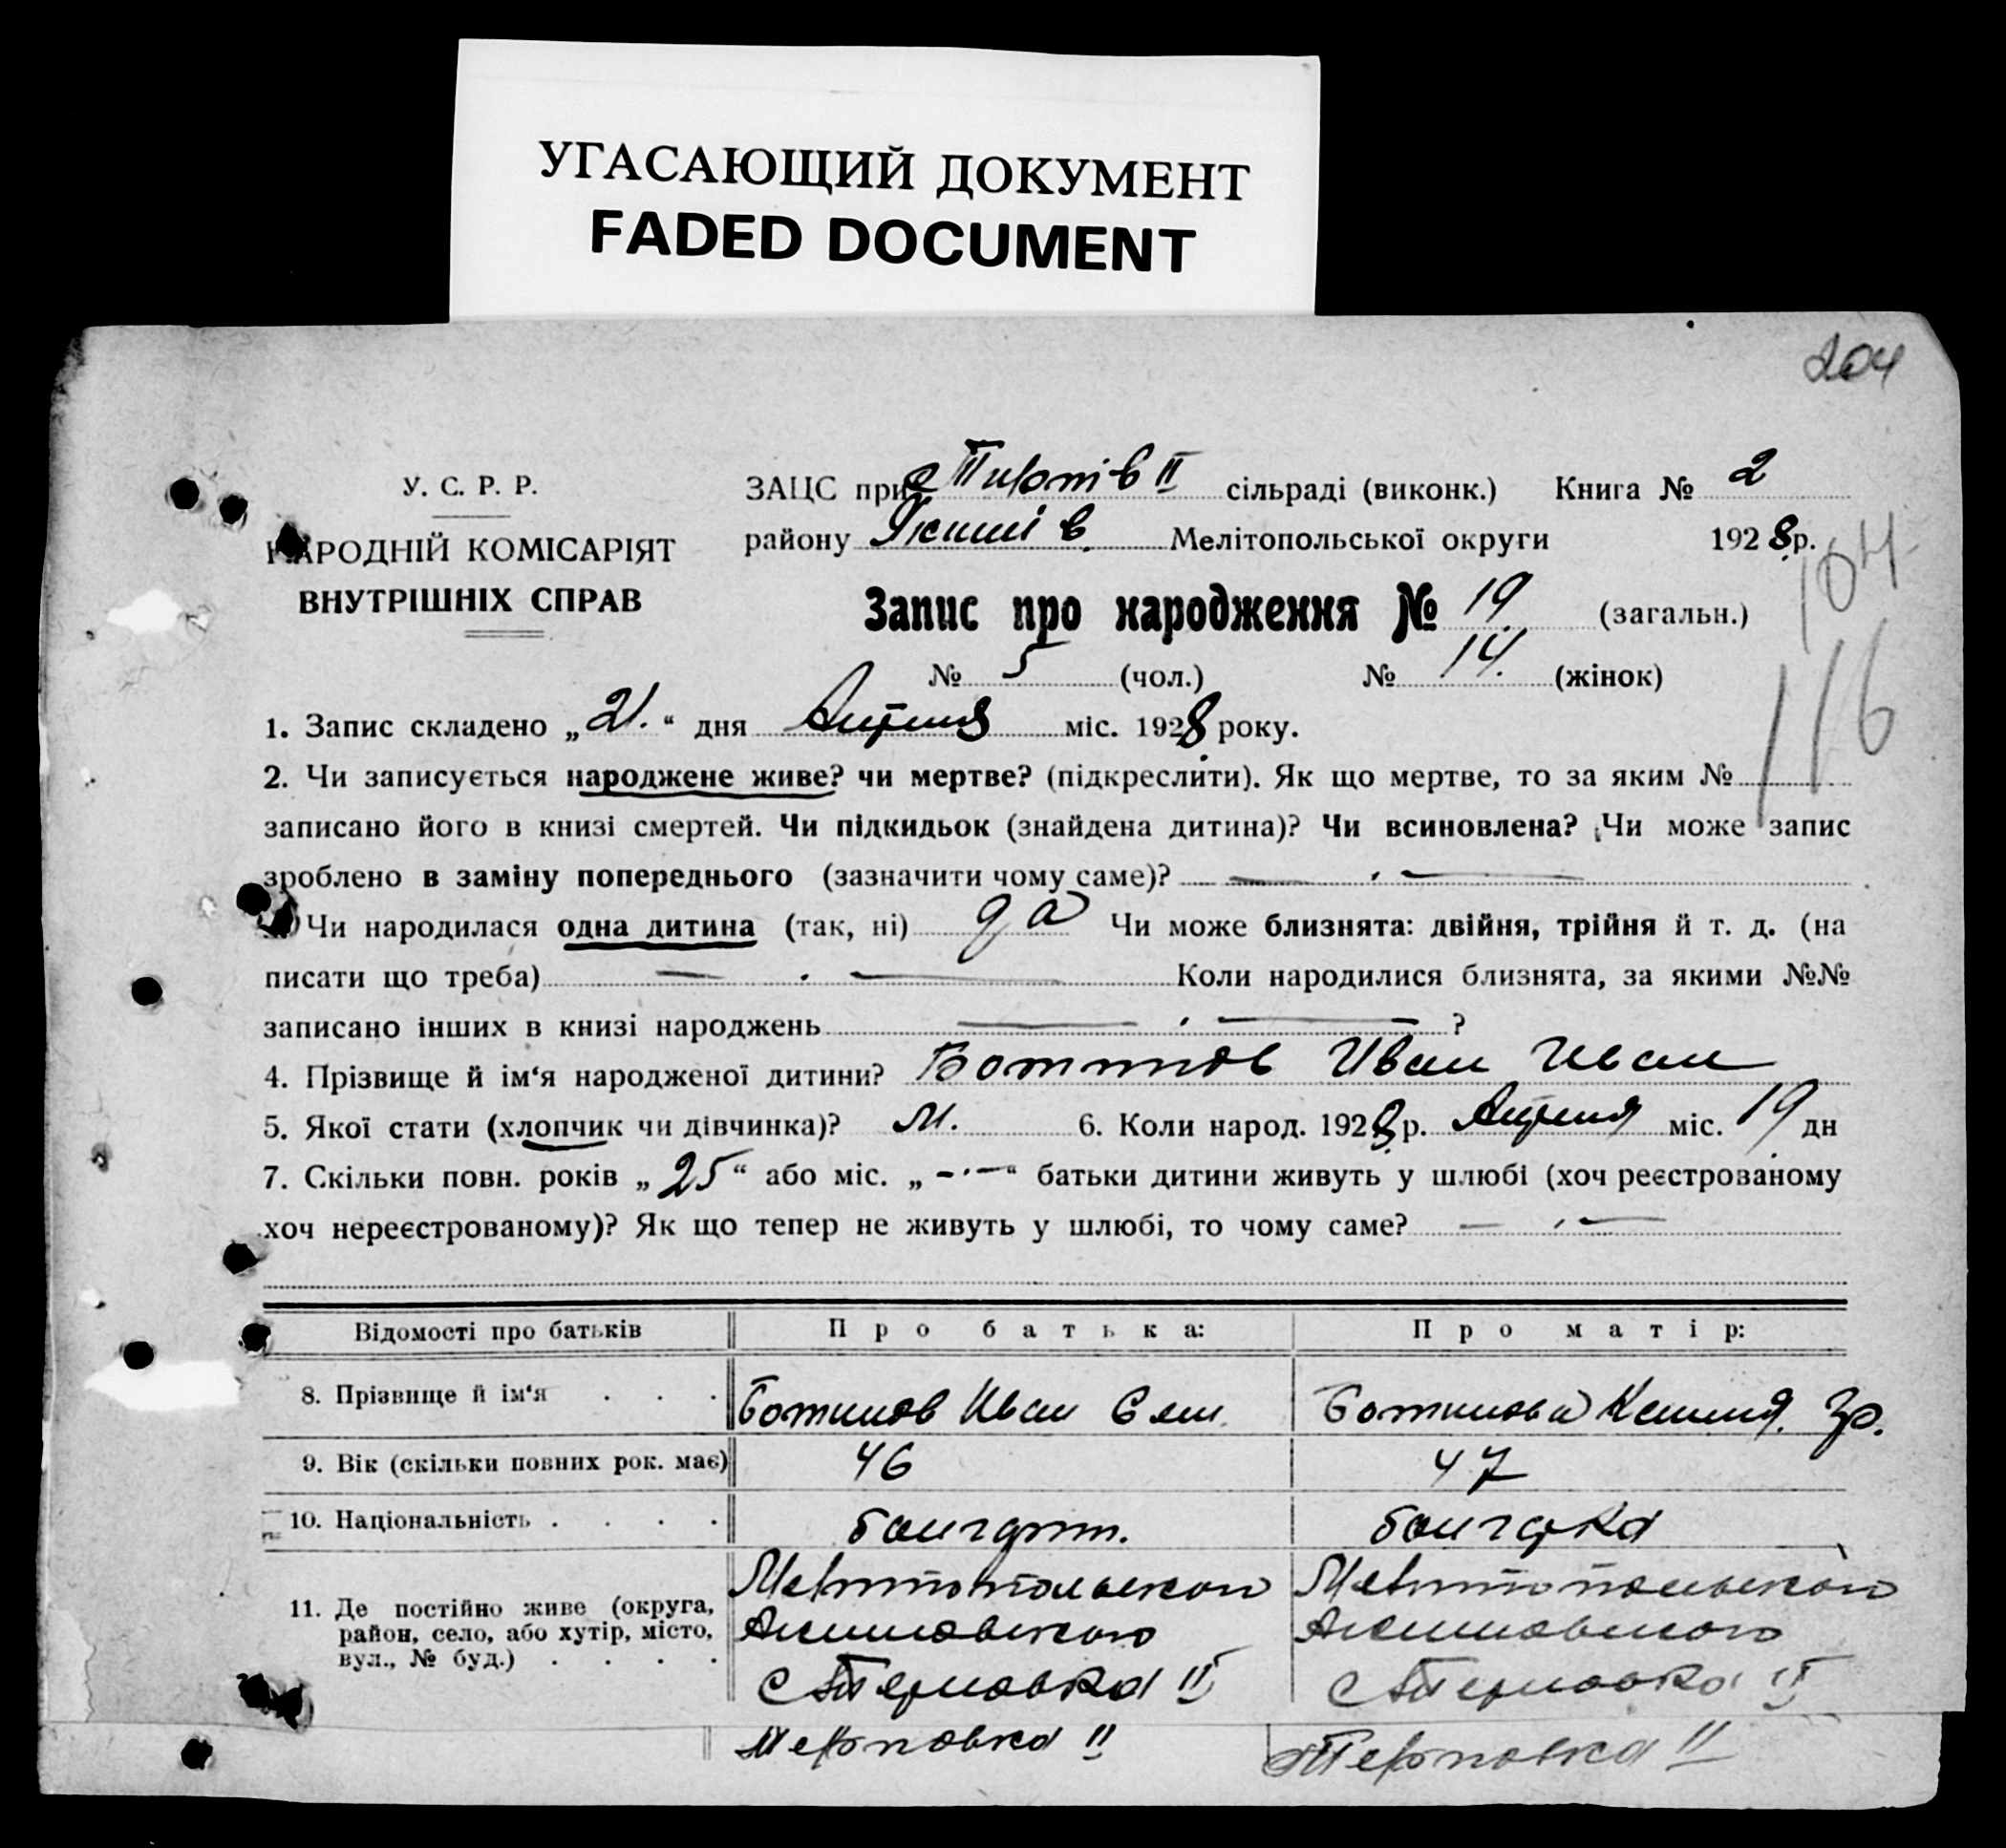 УГАСАЮЩИЙ ДОКУМЕНТ
FADED DOCUMENT
204
У. С. Р. Р.
НАРОДНІЙ КОМІСАРІЯТ
ВНУТРІШНІХ СПРАВ
ЗАЦС при II сільраді (виконк.) Книга № 2
району Якимів Мелітопольської округи 1928 р.
104
Запис про народження № 19 (загальн.)
№ 5 (чол.) № 14. (жінок)
116
1. Запис складено „21.“ дня Апреля міс. 1928 року.
2. Чи записується народжене живе? чи мертве? (підкреслити). Як що мертве, то за яким №
записано його в книзі смертей. Чи підкидьок (знайдена дитина)? Чи всиновлена? Чи може запис
зроблено в заміну попереднього (зазначити чому саме)? — . —
Чи народилася одна дитина (так, ні) да Чи може близнята: двійня, трійня й т. д. (на
писати що треба) — . — Коли народилися близнята, за якими №№
записано інших в книзі народжень — . — ?
4. Прізвище й ім‘я народженої дитини? Ботинов Иван Иван
5. Якої стати (хлопчик чи дівчинка)? М. 6. Коли народ. 1928 р. Апреля міс. 19 дн
7. Скільки повн. років „25“ або міс. „-·-“ батьки дитини живуть у шлюбі (хоч реєстрованому
хоч нереєстрованому)? Як що тепер не живуть у шлюбі, то чому саме? — . —
Відомості про батьків Про батька: Про матір:
8. Прізвище й ім‘я . . . Ботинов Иван Ботинова
9. Вік (скільки повних рок. має) 46 47
10. Національність . . . . болгарин. болгарка
11. Де постійно живе (округа, район, село, або хутір, місто, вул., № буд.) . . . .
Мелитопольского Мелитопольского
Акимовского Акимовского
с Терновка II с Терновка II
Терновка II Терновка II